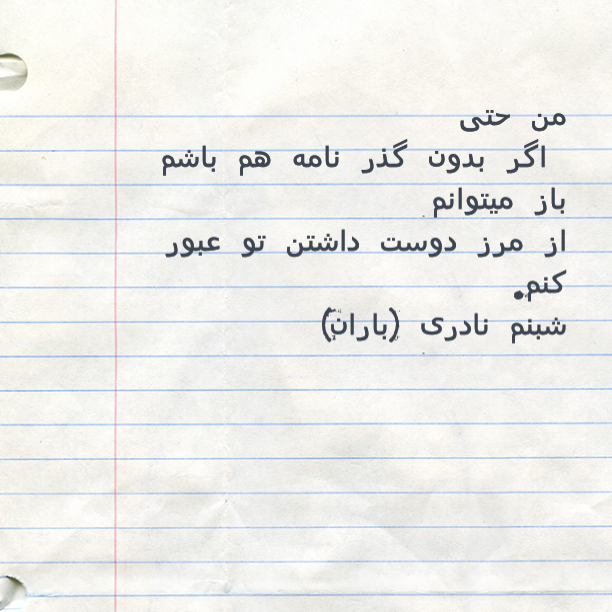 من حتی
اگر بدون گذر نامه هم باشم
باز میتوانم
از مرز دوست داشتن تو عبور
کنم.
شبنم نادری (باران)